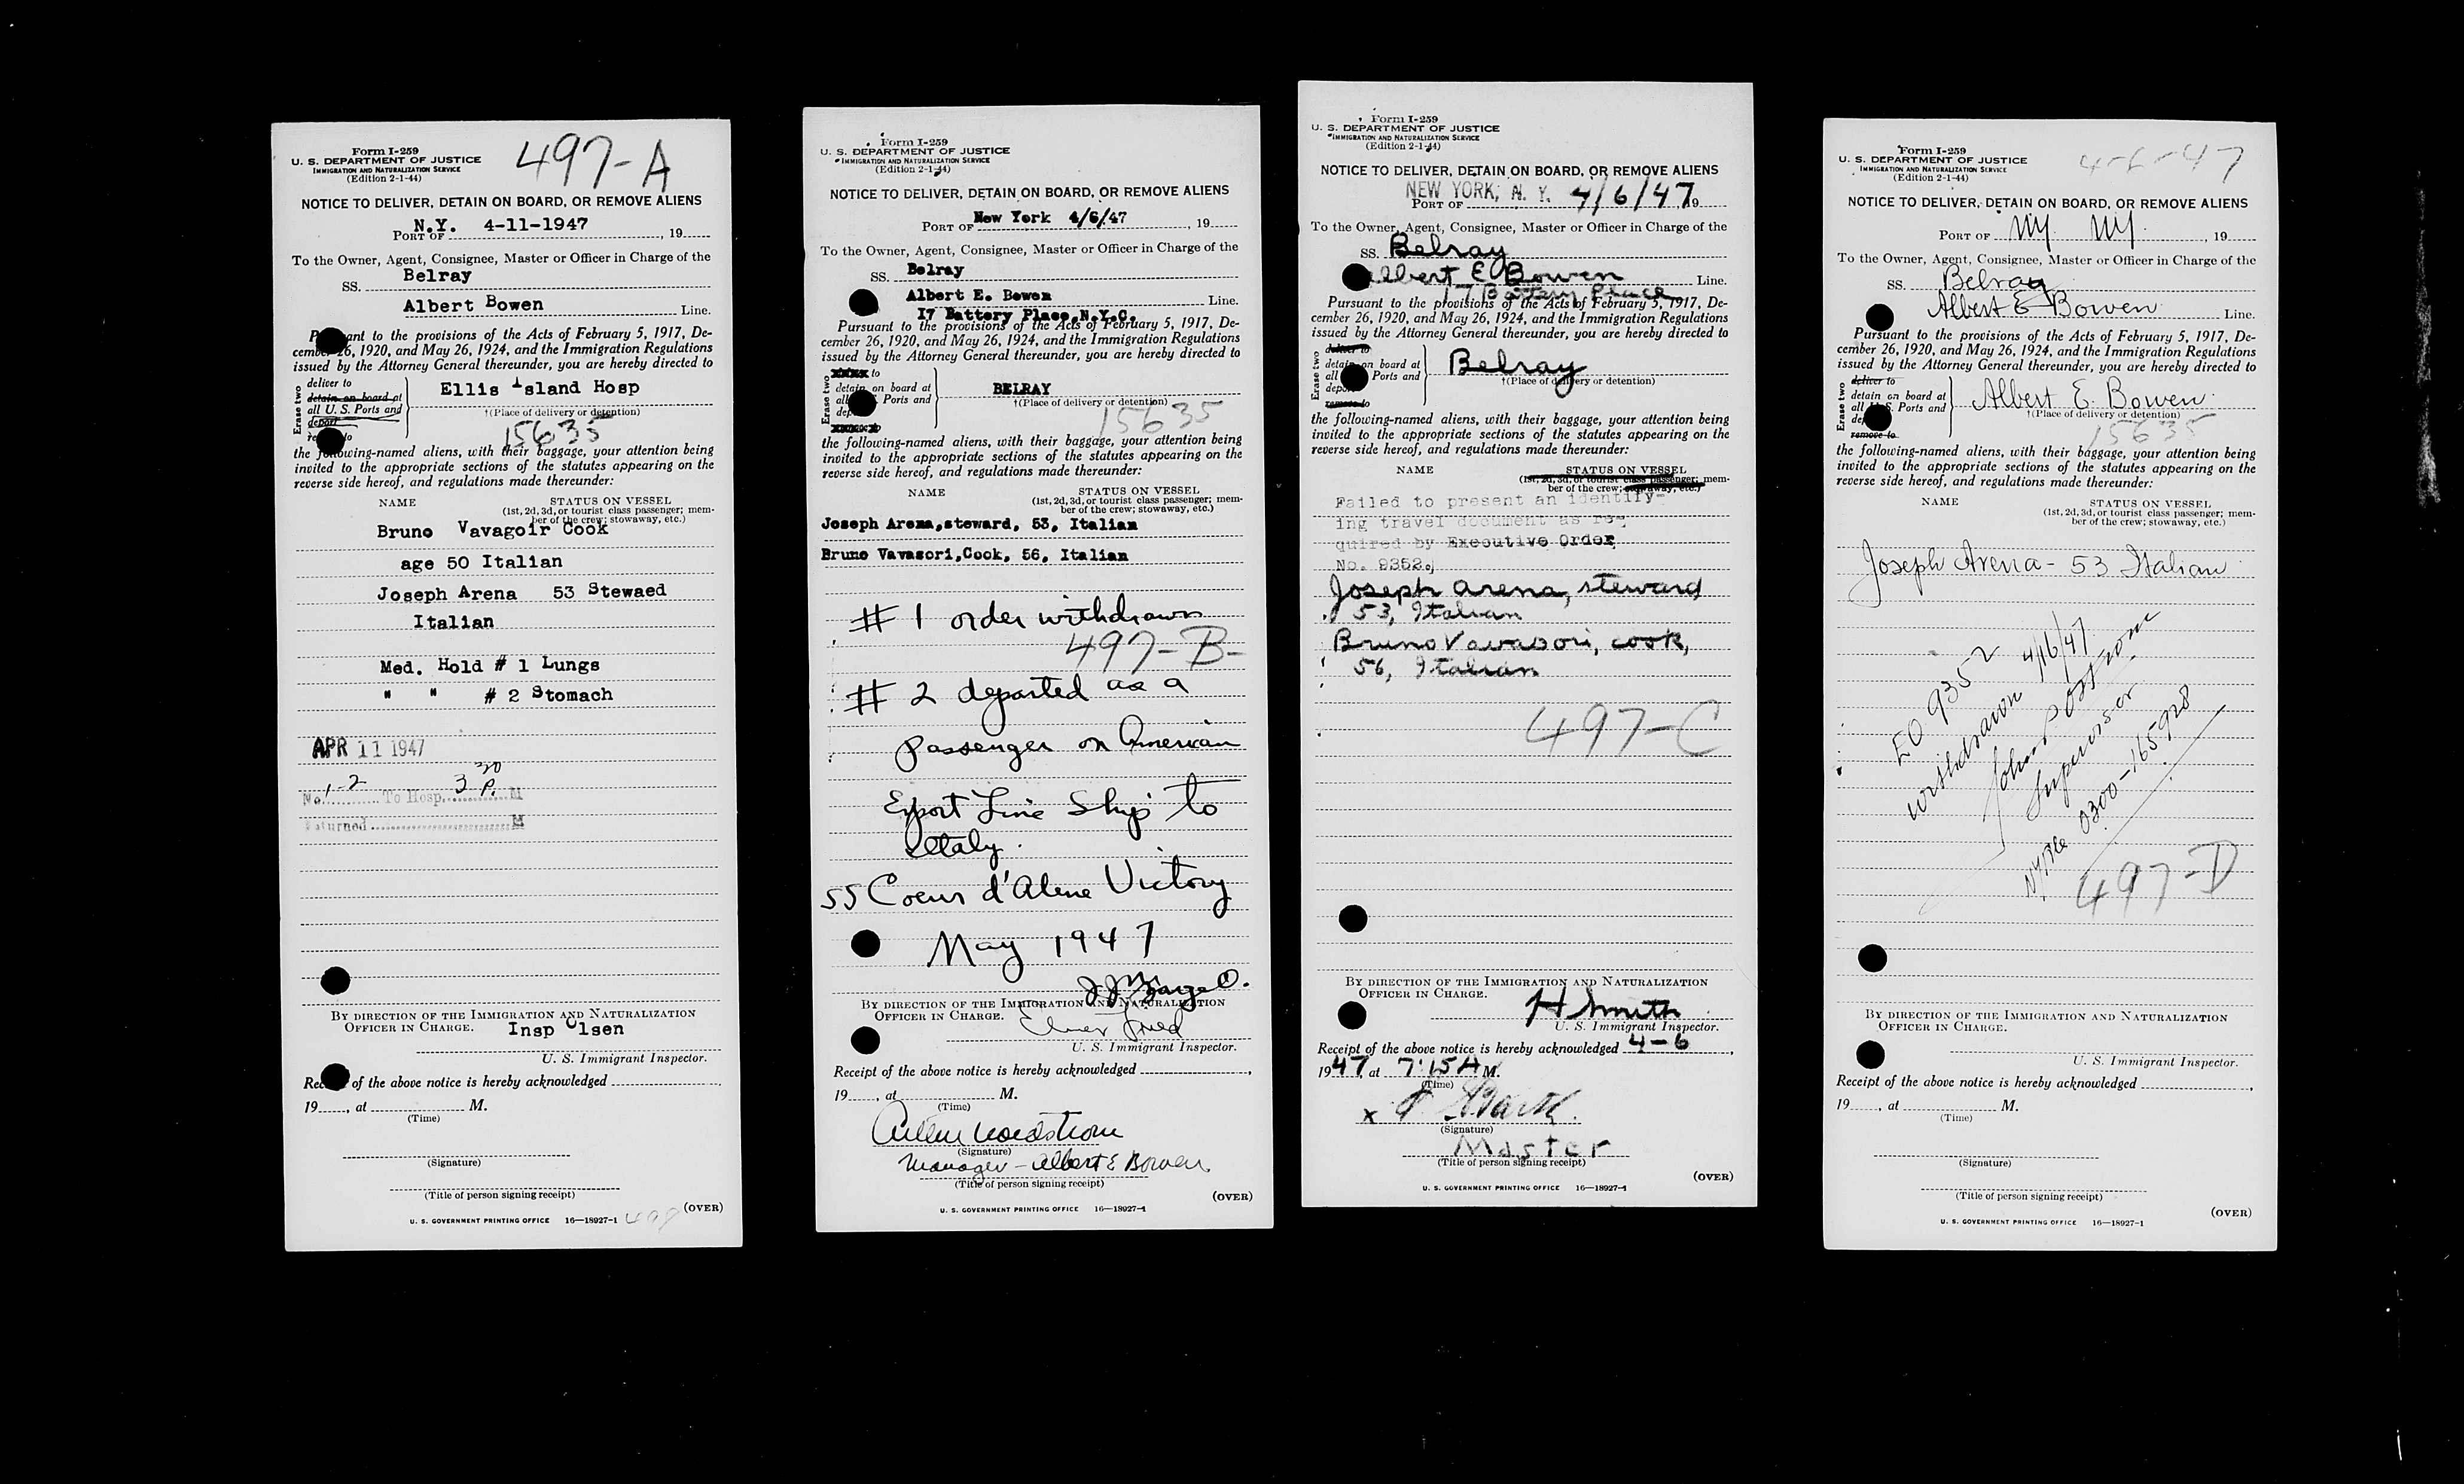 Form I-259
U. S. DEPARTMENT OF JUSTICE
IMMIGRATION AND NATURALIZATION SERVICE
(Edition 2-1-44)
497-A
NOTICE TO DELIVER, DETAIN ON BOARD, OR REMOVE ALIENS
PORT OF N.Y. 4-11-1947, 19
To the Owner, Agent, Consignee, Master or Officer in Charge of the
SS. Belray
Albert Bowen Line.
Pursuant to the provisions of the Acts of February 5, 1917, De-
cember 26, 1920, and May 26, 1924, and the Immigration Regulations
issued by the Attorney General thereunder, you are hereby directed to
Erase two
deliver to
detain on board at
all U. S. Ports and
deport
remove to
Ellis Island Hosp
†(Place of delivery or detention)
15635
the following-named aliens, with their baggage, your attention being
invited to the appropriate sections of the statutes appearing on the
reverse side hereof, and regulations made thereunder:
NAME STATUS ON VESSEL
(1st, 2d, 3d, or tourist class passenger; mem-
ber of the crew; stowaway, etc.)
Bruno Vavagoir Cook
age 50 Italian
Joseph Arena 53 Stewaed
Italian
Med. Hold # 1 Lungs
" " # 2 Stomach
APR 11 1947
No. 1-2 To Hosp. 3 30 P. M
Returned M
BY DIRECTION OF THE IMMIGRATION AND NATURALIZATION
OFFICER IN CHARGE.
Insp Olsen
U. S. Immigrant Inspector.
Receipt of the above notice is hereby acknowledged
19, at M.
(Time)
(Signature)
(Title of person signing receipt)
(OVER)
U. S. GOVERNMENT PRINTING OFFICE 16—18927-1
Form I-259
U. S. DEPARTMENT OF JUSTICE
IMMIGRATION AND NATURALIZATION SERVICE
(Edition 2-1-44)
NOTICE TO DELIVER, DETAIN ON BOARD, OR REMOVE ALIENS
PORT OF New York 4/6/47, 19
To the Owner, Agent, Consignee, Master or Officer in Charge of the
SS. Belray
Albert E. Bowen Line.
17 Battery Place, N.Y.C.
Pursuant to the provisions of the Acts of February 5, 1917, De-
cember 26, 1920, and May 26, 1924, and the Immigration Regulations
issued by the Attorney General thereunder, you are hereby directed to
Erase two
XXXX to
detain on board at
all U. S. Ports and
BELRAY
†(Place of delivery or detention)
15635
the following-named aliens, with their baggage, your attention being
invited to the appropriate sections of the statutes appearing on the
reverse side hereof, and regulations made thereunder:
NAME STATUS ON VESSEL
(1st, 2d, 3d, or tourist class passenger; mem-
ber of the crew; stowaway, etc.)
Joseph Arena, steward, 53, Italian
Bruno Vavasori, Cook, 56, Italian
# 1 order withdrawn
497-B-
# 2 departed as a
passenger on American
Export Line Ship to
Italy.
SS Coeur d'Alene Victory
May 1947
BY DIRECTION OF THE IMMIGRATION AND NATURALIZATION
OFFICER IN CHARGE.
Elmer Fried
U. S. Immigrant Inspector.
Receipt of the above notice is hereby acknowledged
19, at M.
(Time)
(Signature)
Manager - Albert E Bowen
(Title of person signing receipt)
(OVER)
U. S. GOVERNMENT PRINTING OFFICE 16—18927-1
Form I-259
U. S. DEPARTMENT OF JUSTICE
IMMIGRATION AND NATURALIZATION SERVICE
(Edition 2-1-44)
NOTICE TO DELIVER, DETAIN ON BOARD, OR REMOVE ALIENS
PORT OF NEW YORK, N. Y. 4/6/47 19
To the Owner, Agent, Consignee, Master or Officer in Charge of the
SS. Belray
Albert E Bowen Line.
17 Battery Place
Pursuant to the provisions of the Acts of February 5, 1917, De-
cember 26, 1920, and May 26, 1924, and the Immigration Regulations
issued by the Attorney General thereunder, you are hereby directed to
Erase two
deliver to
detain on board at
all U. S. Ports and
deport
remove to
Belray
†(Place of delivery or detention)
the following-named aliens, with their baggage, your attention being
invited to the appropriate sections of the statutes appearing on the
reverse side hereof, and regulations made thereunder:
NAME STATUS ON VESSEL
(1st, 2d, 3d, or tourist class passenger; mem-
ber of the crew; stowaway, etc.)
Failed to present an identify-
ing travel document as re-
quired by Executive Order
No. 9352.
Joseph Arena, steward
53, Italian
Bruno Vavasori, cook,
56, Italian
497-C
BY DIRECTION OF THE IMMIGRATION AND NATURALIZATION
OFFICER IN CHARGE.
H Smith
U. S. Immigrant Inspector.
Receipt of the above notice is hereby acknowledged 4-6,
1947, at 7:15A M.
(Time)
x
(Signature)
Master
(Title of person signing receipt)
(OVER)
U. S. GOVERNMENT PRINTING OFFICE 16—18927-1
Form I-259
U. S. DEPARTMENT OF JUSTICE
IMMIGRATION AND NATURALIZATION SERVICE
(Edition 2-1-44)
4-6-47
NOTICE TO DELIVER, DETAIN ON BOARD, OR REMOVE ALIENS
PORT OF NY. NY., 19
To the Owner, Agent, Consignee, Master or Officer in Charge of the
SS. Belray
Albert E Bowen Line.
Pursuant to the provisions of the Acts of February 5, 1917, De-
cember 26, 1920, and May 26, 1924, and the Immigration Regulations
issued by the Attorney General thereunder, you are hereby directed to
Erase two
deliver to
detain on board at
all U. S. Ports and
deport
remove to
Albert E. Bowen
†(Place of delivery or detention)
15635
the following-named aliens, with their baggage, your attention being
invited to the appropriate sections of the statutes appearing on the
reverse side hereof, and regulations made thereunder:
NAME STATUS ON VESSEL
(1st, 2d, 3d, or tourist class passenger; mem-
ber of the crew; stowaway, etc.)
Joseph Arena - 53 Italian
EO 9352
withdrawn 4/16/47
Supervisor
NY file 0300-165928
497-D
BY DIRECTION OF THE IMMIGRATION AND NATURALIZATION
OFFICER IN CHARGE.
U. S. Immigrant Inspector.
Receipt of the above notice is hereby acknowledged
19, at M.
(Time)
(Signature)
(Title of person signing receipt)
(OVER)
U. S. GOVERNMENT PRINTING OFFICE 16—18927-1